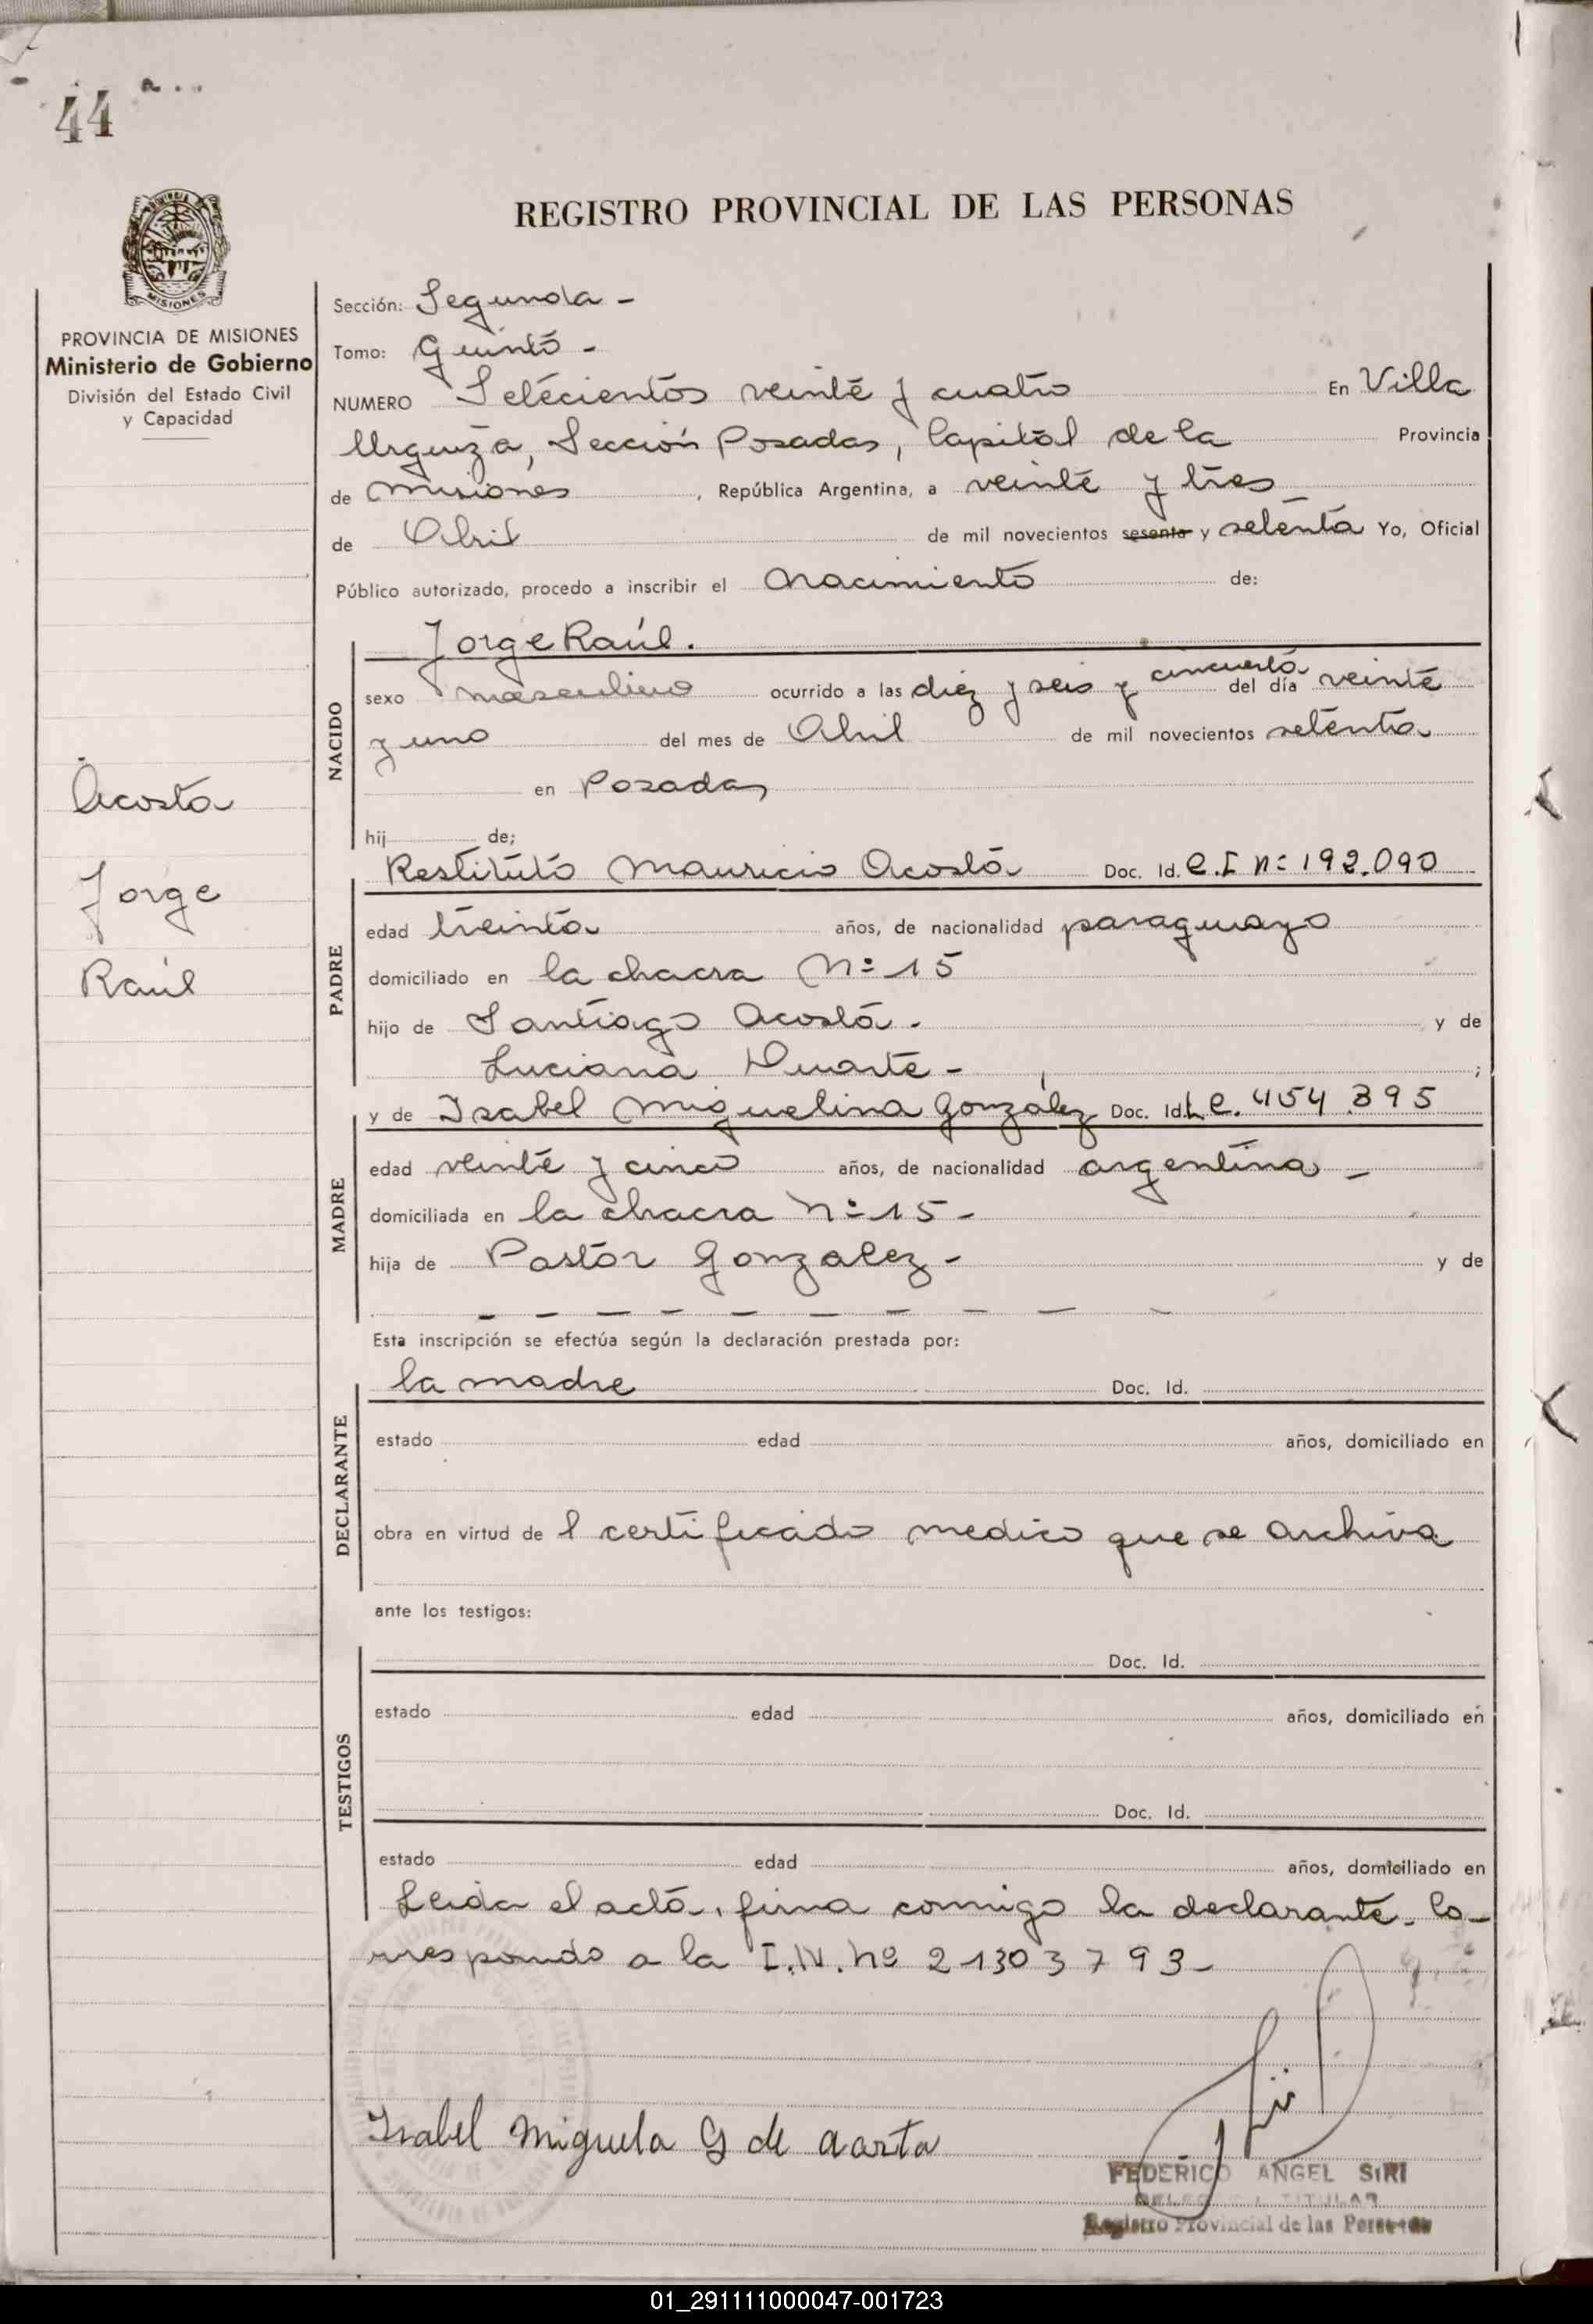 44
REGISTRO PROVINCIAL DE LAS PERSONAS
MISIONES
PROVINCIA DE MISIONES
Ministerio de Gobierno
División del Estado Civil
y Capacidad
Acosta
Jorge
Raúl
Sección: Segunda -
Tomo: Quinto -
NUMERO Setecientos veinte y cuatro En Villa
Urquiza, Sección Posadas, Capital de la Provincia
de Misiones, República Argentina, a veinte y tres
de Abril de mil novecientos sesenta y setenta Yo, Oficial
Público autorizado, procedo a inscribir el Nacimiento de:
NACIDO
Jorge Raúl.
sexo masculino ocurrido a las diez y seis y cincuenta del día veinte
y uno del mes de Abril de mil novecientos setenta
en Posadas
hij de;
PADRE
Restituto Mauricio Acosta Doc. Id. C.I Nº 192.090
edad treinta años, de nacionalidad paraguayo
domiciliado en la chacra Nº 15
hijo de Santiago Acosta. y de
Luciana Duarte - ;
MADRE
y de Isabel Miguelina González Doc. Id. L.C. 454.395
edad veinte y cinco años, de nacionalidad argentina -
domiciliada en la chacra Nº 15 -
hija de Pastor Gonzalez - y de
- - - - - - - - - -
Esta inscripción se efectúa según la declaración prestada por:
DECLARANTE
la madre Doc. Id.
estado edad años, domiciliado en
obra en virtud de l certificado medico que se archiva
ante los testigos:
TESTIGOS
Doc. Id.
estado edad años, domiciliado en
Doc. Id.
estado edad años, domiciliado en
Leida el acta, firma conmigo la declarante. Co-
rresponde a la I.N. Nº 21303793-
Isabel Miguela G de Acosta
FEDERICO ANGEL SIRI
DELEGADO TITULAR
Registro Provincial de las Personas
01_291111000047-001723